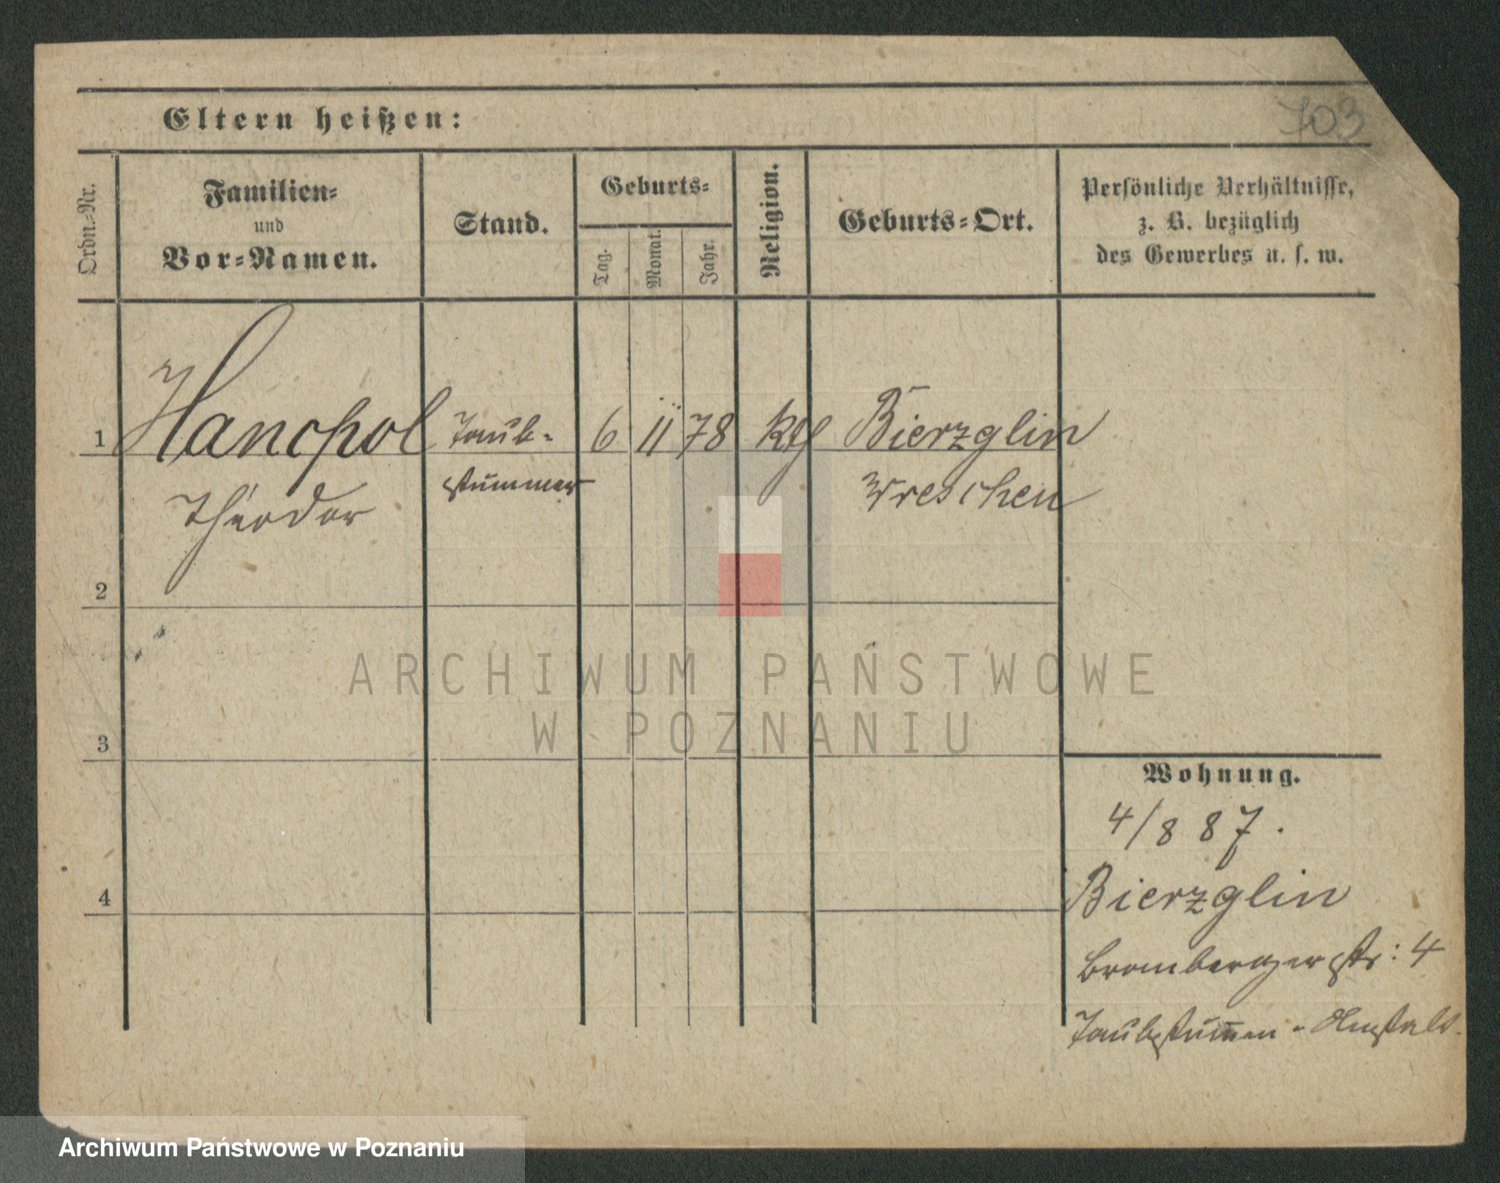 703
Eltern heißen:
Ordn.-Nr.
Familien-
und
Vor-Namen.
Stand.
Geburts-
Tag.
Monat.
Jahr.
Religion.
Geburts-Ort.
Persönliche Verhältnisse,
z. B. bezüglich
des Gewerbes u. s. w.
1 Hancpol Taub- 6 11 78 kth Bierzglin
stummer Wreschen
Theodor
2
3
4
Wohnung.
4/8 87.
Bierzglin
Brombergerstr: 4
Taubstummen-Anstalt.
ARCHIWUM PAŃSTWOWE
W POZNANIU
Archiwum Państwowe w Poznaniu